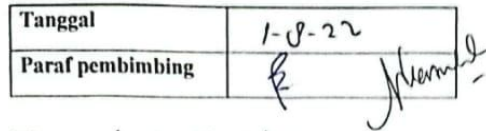 Tanggal 1-8-22
Paraf pembimbing